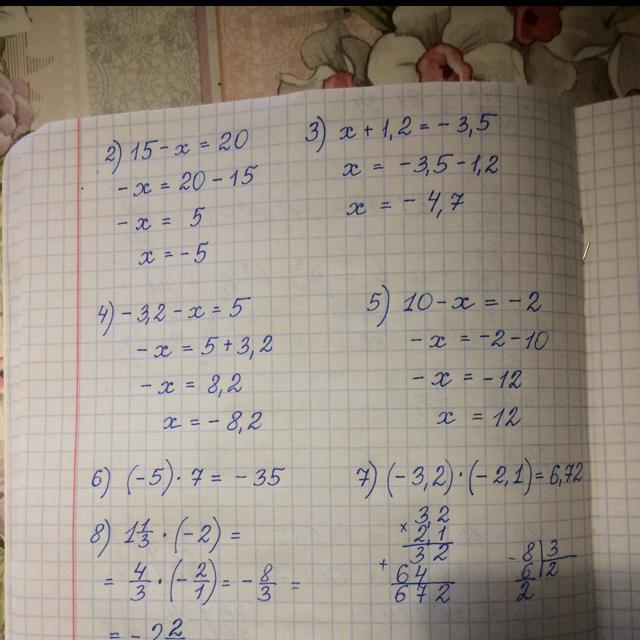 2) 15 - x = 20
- x = 20 - 15
- x = 5
x = -5
3) x + 1,2 = - 3,5
x = -3,5 - 1,2
x = - 4,7
4) - 3,2 - x = 5
- x = 5 + 3,2
- x = 8,2
x = - 8,2
5) 10 - x = -2
- x = -2 - 10
- x = -12
x = 12
6) (-5) · 7 = - 35
7) (-3,2) · (-2,1) = 6,72
32
× 21
32
+ 64
672
8) 1 1/3 · (-2) =
= 4/3 · (- 2/1) = - 8/3 =
= - 2 2
- 8 | 3
6 | 2
2